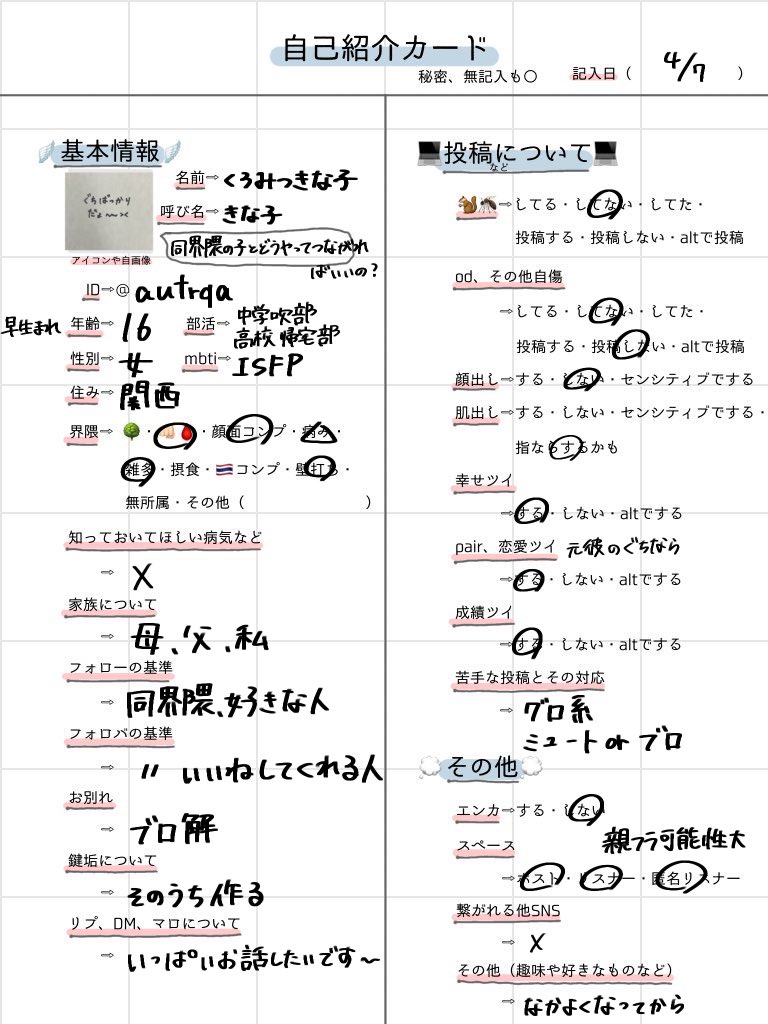 自己紹介カード
秘密、無記入も〇
記入日（ 4/7 ）
基本情報
ぐちばっかり
だょ〜〜><
アイコンや自画像
名前⇨くろみつきな子
呼び名⇨きな子
同界隈の子とどうやってつながれ
ばいいの？
ID⇨@ autrqa
早生まれ 年齢⇨ 16
部活⇨ 中学吹部
高校 帰宅部
性別⇨ 女
mbti⇨ ISFP
住み⇨ 関西
界隈⇨🌳・👊🏻🩸・顔面コンプ・病み・
雑多・摂食・🇹🇭コンプ・壁打ち・
無所属・その他（ ）
知っておいてほしい病気など
⇨ X
家族について
⇨ 母、父、私
フォローの基準
⇨ 同界隈、好きな人
フォロバの基準
⇨ 〃 いいねしてくれる人
お別れ
⇨ ブロ解
鍵垢について
⇨ そのうち作る
リプ、DM、マロについて
⇨ いっぱいお話したいです〜
💻投稿について💻
など
🐿🦟⇨してる・してない・してた・
投稿する・投稿しない・altで投稿
od、その他自傷
⇨してる・してない・してた・
投稿する・投稿しない・altで投稿
顔出し⇨する・しない・センシティブでする
肌出し⇨する・しない・センシティブでする・
指ならするかも
幸せツイ
⇨する・しない・altでする
pair、恋愛ツイ 元彼のぐちなら
⇨する・しない・altでする
成績ツイ
⇨する・しない・altでする
苦手な投稿とその対応
⇨ グロ系
ミュート or ブロ
💭その他💭
エンカ⇨する・しない
スペース 親フラ可能性大
⇨ホスト・リスナー・匿名リスナー
繋がれる他SNS
⇨ X
その他（趣味や好きなものなど）
⇨ なかよくなってから